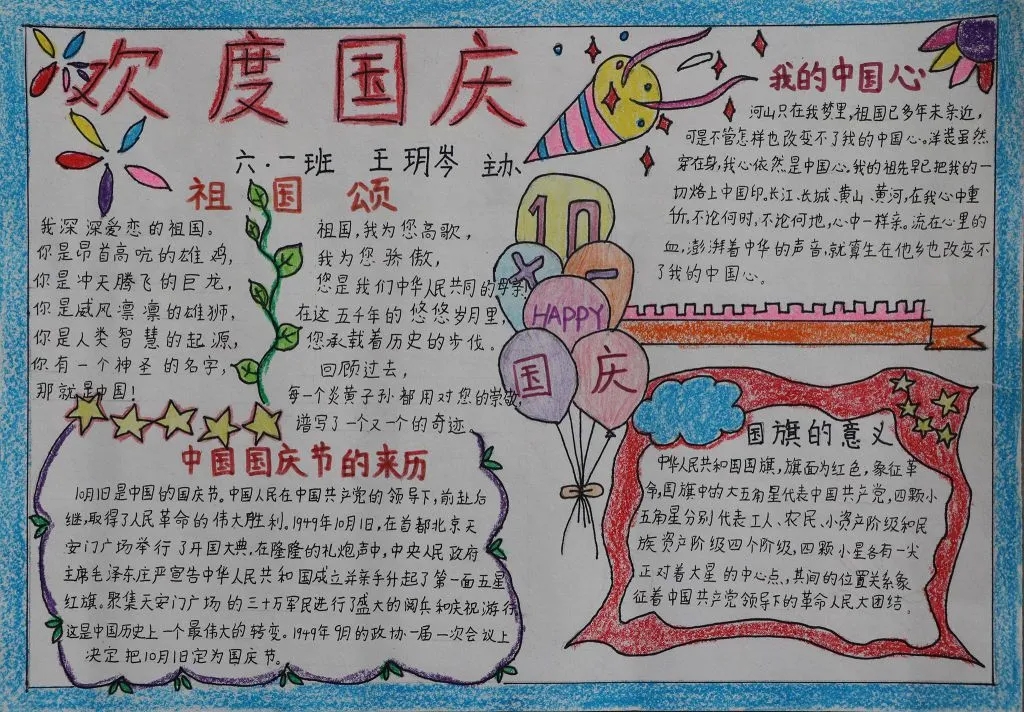 欢度国庆
六.一班 王玥岑 主办
祖国颂
我深深爱恋的祖国。
你是昂首高吭的雄鸡,
你是冲天腾飞的巨龙,
你是威风凛凛的雄狮,
你是人类智慧的起源,
你有一个神圣的名字,
那就是中国!
祖国,我为您高歌,
我为您骄傲,
您是我们中华人民共同的母亲!
在这五千年的悠悠岁月里,
您承载着历史的步伐。
回顾过去,
每一个炎黄子孙都用对您的崇敬,
谱写了一个又一个的奇迹。
10
×一
HAPPY
国庆
我的中国心
河山只在我梦里,祖国已多年未亲近,
可是不管怎样也改变不了我的中国心。洋装虽然
穿在身,我心依然是中国心。我的祖先早已把我的一
切烙上中国印。长江、长城、黄山、黄河,在我心中重
千斤,不论何时,不论何地,心中一样亲。流在心里的
血,澎湃着中华的声音,就算生在他乡也改变不
了我的中国心。
中国国庆节的来历
10月1日是中国的国庆节。中国人民在中国共产党的领导下,前赴后
继,取得了人民革命的伟大胜利。1949年10月1日,在首都北京天
安门广场举行了开国大典,在隆隆的礼炮声中,中央人民政府
主席毛泽东庄严宣告中华人民共和国成立并亲手升起了第一面五星
红旗。聚集天安门广场的三十万军民进行了盛大的阅兵和庆祝游行
这是中国历史上一个最伟大的转变。1949年9月的政协一届一次会议上
决定把10月1日定为国庆节。
国旗的意义
中华人民共和国国旗,旗面为红色,象征革
命,国旗中的大五角星代表中国共产党,四颗小
五角星分别代表工人、农民、小资产阶级和民
族资产阶级四个阶级,四颗小星各有一尖
正对着大星的中心点,其间的位置关系象
征着中国共产党领导下的革命人民大团结。